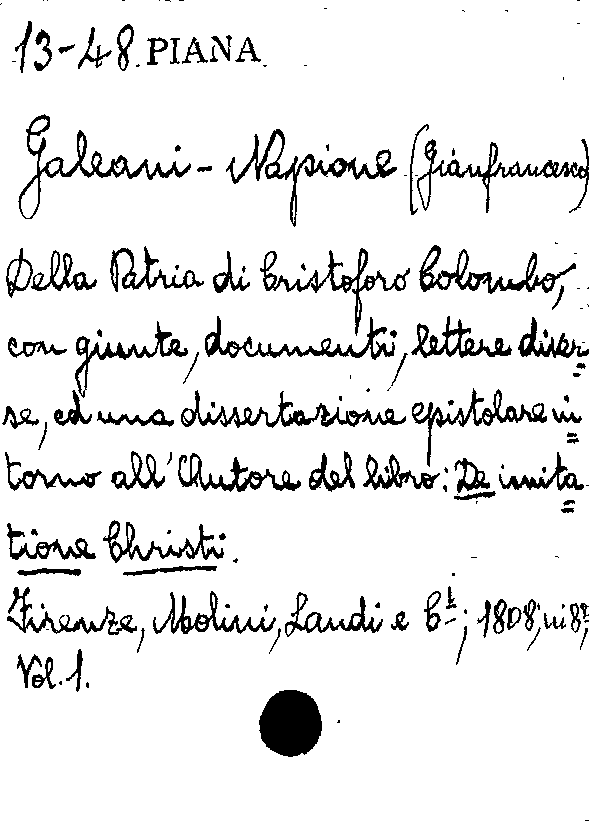 13-48 PIANA
Galeani-Napione (Gianfrancesco)
Della Patria di Cristoforo Colombo,
con giunte, documenti, lettere diver=
se, ed una dissertazione epistolare in=
torno all'Autore del libro: De imita=
tione Christi.
Firenze, Molini, Landi e C.i; 1808; in 8º;
Vol. 1.